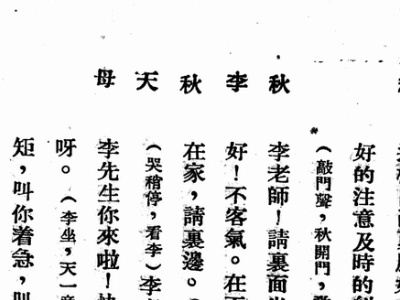 好的注意及時的
（敲門聲，秋開門，
秋　李老師！請裏面
李　好！不客氣。在
秋　在家，請裏邊。
天　（哭稍停，看李）李
母　李先生你來啦！
呀。（李坐，天一
矩，叫你着急，叫